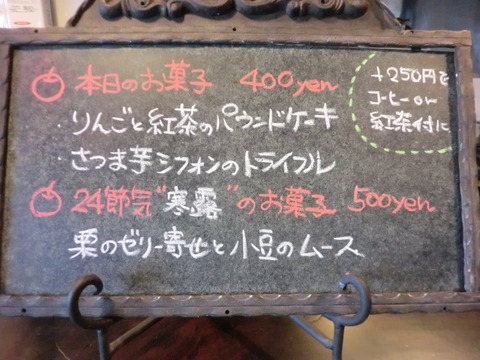 本日のお菓子 400yen
・りんごと紅茶のパウンドケーキ
・さつま芋シフォンのトライフル
24節気"寒露"のお菓子 500yen
栗のゼリー寄せと小豆のムース
+250円で
コーヒーor
紅茶付に